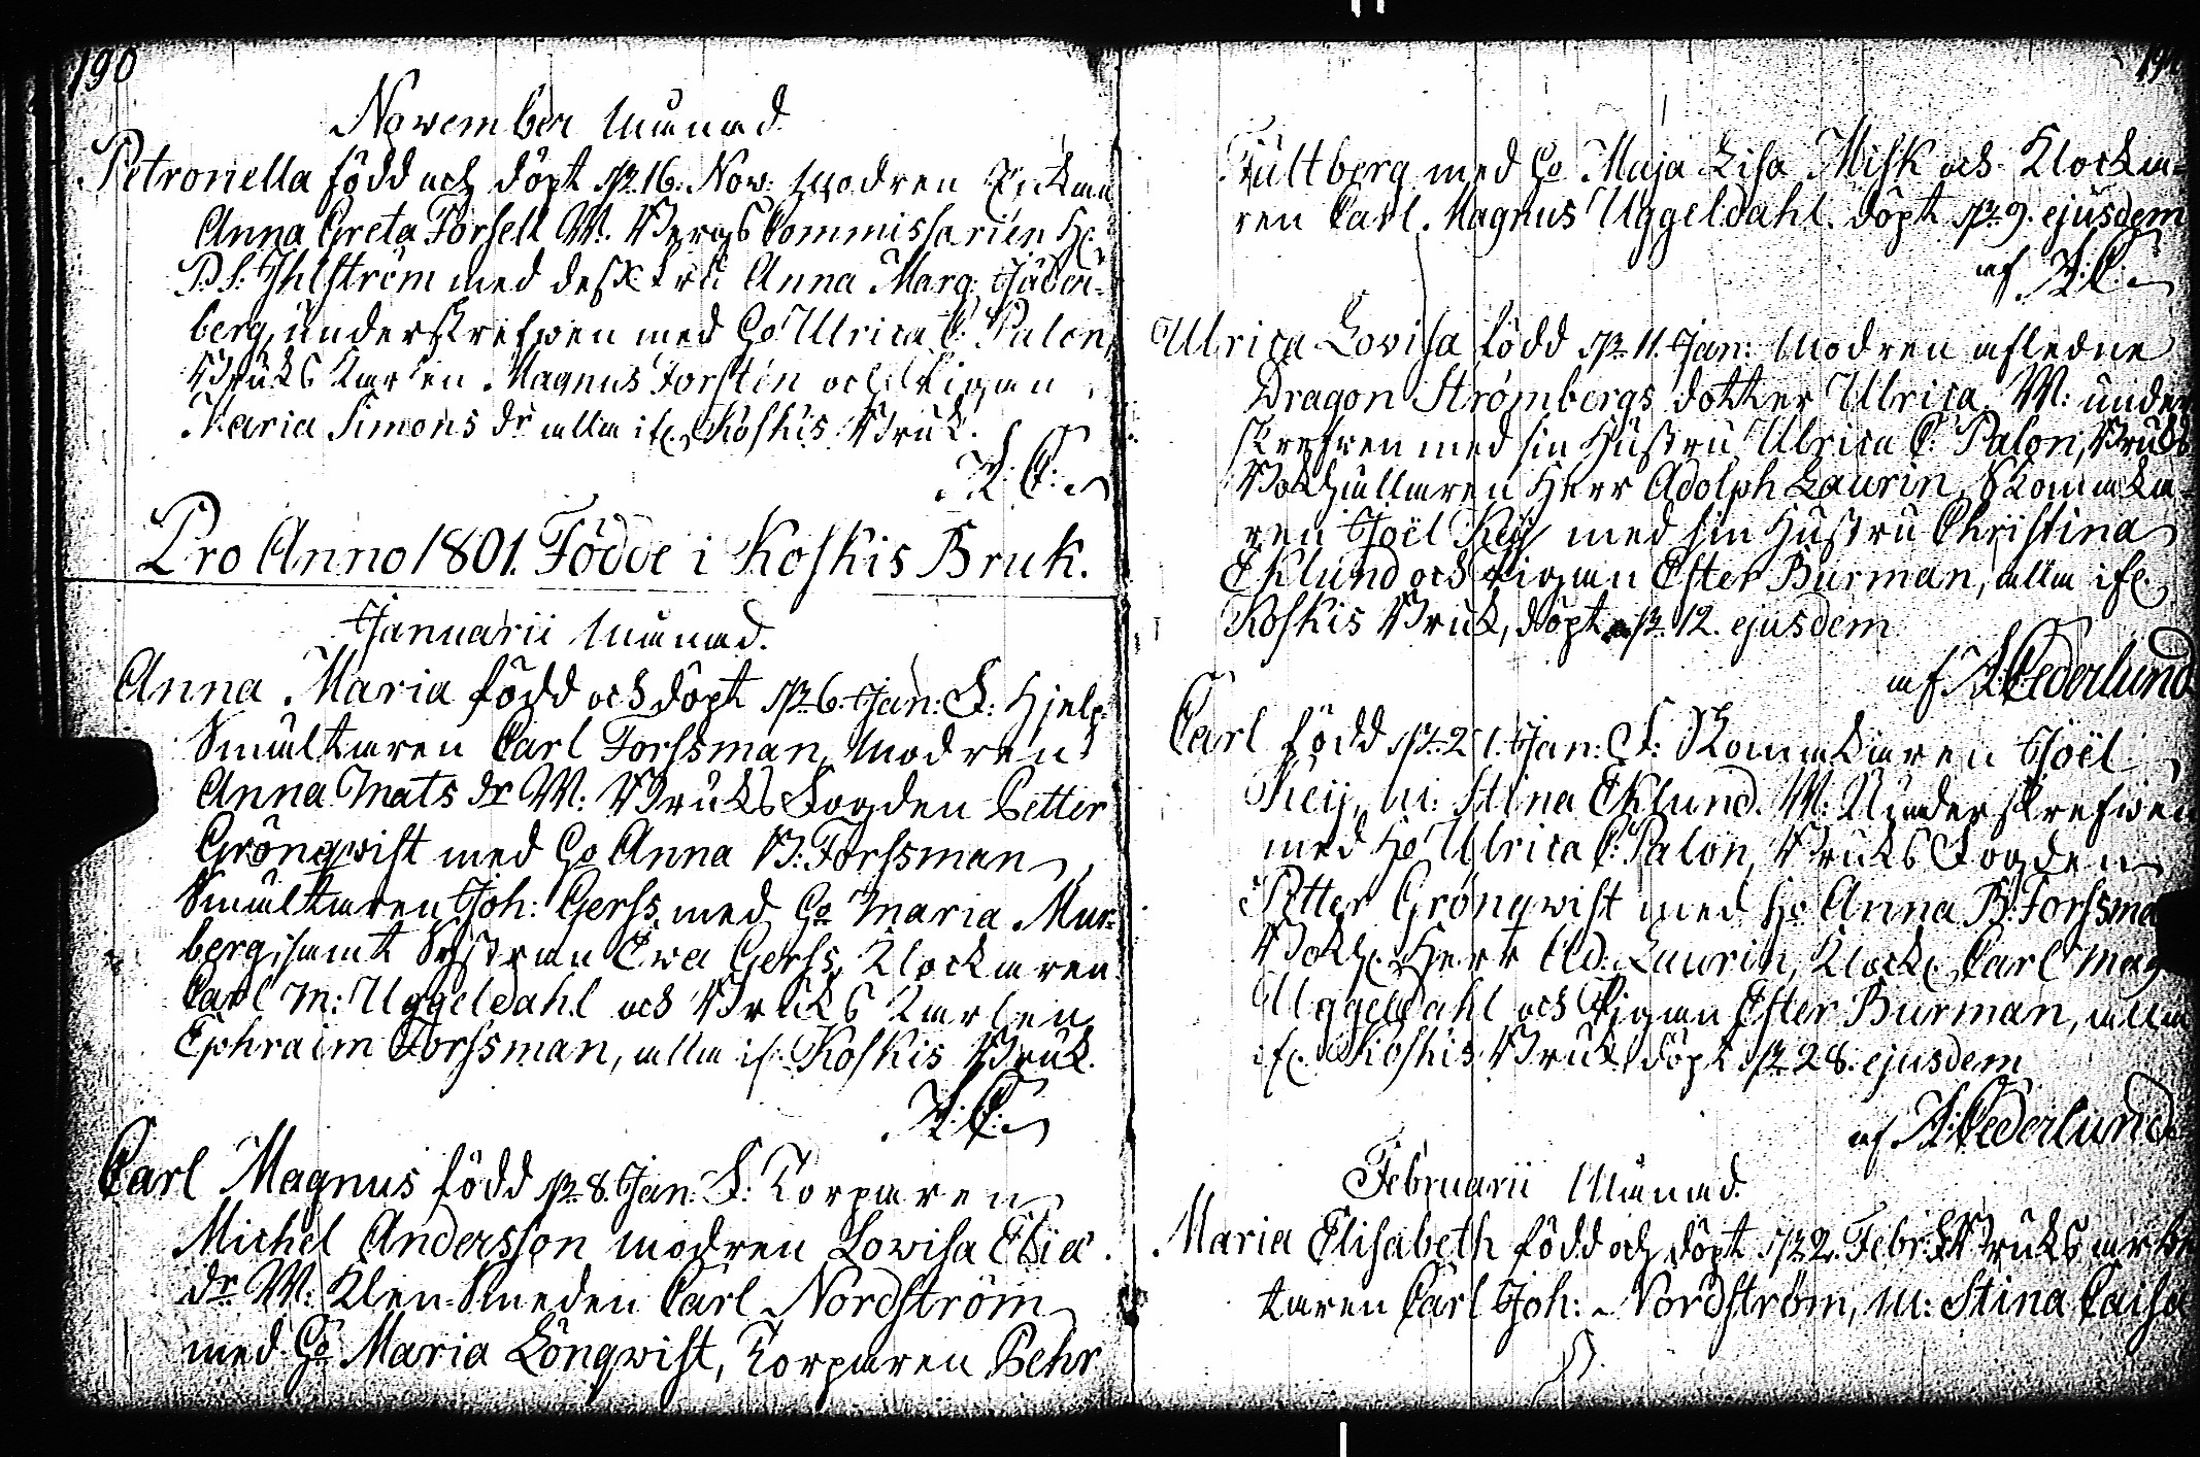 190
November Månad
Petronella född och döpt d. 16. Nov: Modren Enkan
Anna Greta Forsell W: Bergs Commissarien H:
P. S: Ihlström med dess Fru Anna Marg:
berg, underskrefwen med Ho Ulrica C: Palon,
Bruks Karlen Magnus Forstin och Pigan
Maria Simons dr alla ifr. Koskis Bruk.
A: C:
Pro Anno 1801. Födde i Koskis Bruk.
Januarii Månad.
Anna Maria född och döpt d. 6. Jan: F: Hjelp
Smältaren Carl Forssman, Modren
Anna Mats dr W: Bruks Fogden Petter
Grönqwist med Ho Anna B: Forssman,
Smältaren Joh: Gerss med Ho Maria Mur-
berg, samt Systran Ewa Gerss, Klockaren
Carl M: Uggeldahl och Bruks Karlen
Ephraim Forssman, alla ifr. Koskis Bruk.
A: C:
Carl Magnus född d. 8. Jan: F: Torparen
Michel Andersson modren Lovisa Elia
dr W: Klen-Smeden Carl Nordström
med Ho Maria Lönqwist, Torparen Pehr
191
Fältberg med Ho Maja Lisa Misk och Klocka-
ren Carl Magnus Uggeldahl. döpt d. 9. ejusdem
af A: C:
Ulrica Lovisa född d. 11. Jan: Modren afledne
Dragon Strömbergs dotter Ulrica W: under
skrefven med sin Hustru Ulrica C: Palon, Bruks
Bokhållaren Herr Adolph Laurin, Skomaka-
ren Joël Keij med sin Hustru Christina
Eklund och Pigan Ester Burman, alla ifr.
Koskis Bruk, döpt d. 12. ejusdem
af A: Cederlund
Carl född d. 21. Jan: F: Skomakaren Joël
Keij, M: Stina Eklund. W: Underskrefwen
med Ho Ulrica C: Palon, Bruks Fogden
Petter Grönqwist med Ho Anna B: Forssma
Bokh. Herr Ad: Laurin, Klock. Carl Mag
Uggeldahl och Pigan Ester Burman, alla
ifr. Koskis Bruk döpt d. 28. ejusdem
af A: Cederlund
Februarii Månad.
Maria Elisabeth född och döpt d. 2. Febr: F: Bruks arbe
taren Carl Joh: Nordström, M: Stina Caisa